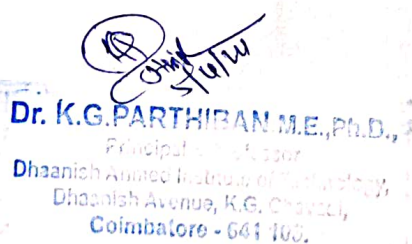 5/6/24
Dr. K.G.PARTHIBAN M.E.,Ph.D.,
Principal
Dhaanish Ahmed Institute of Technology,
Dhaanish Avenue, K.G. Chavadi,
Coimbatore - 641 105.